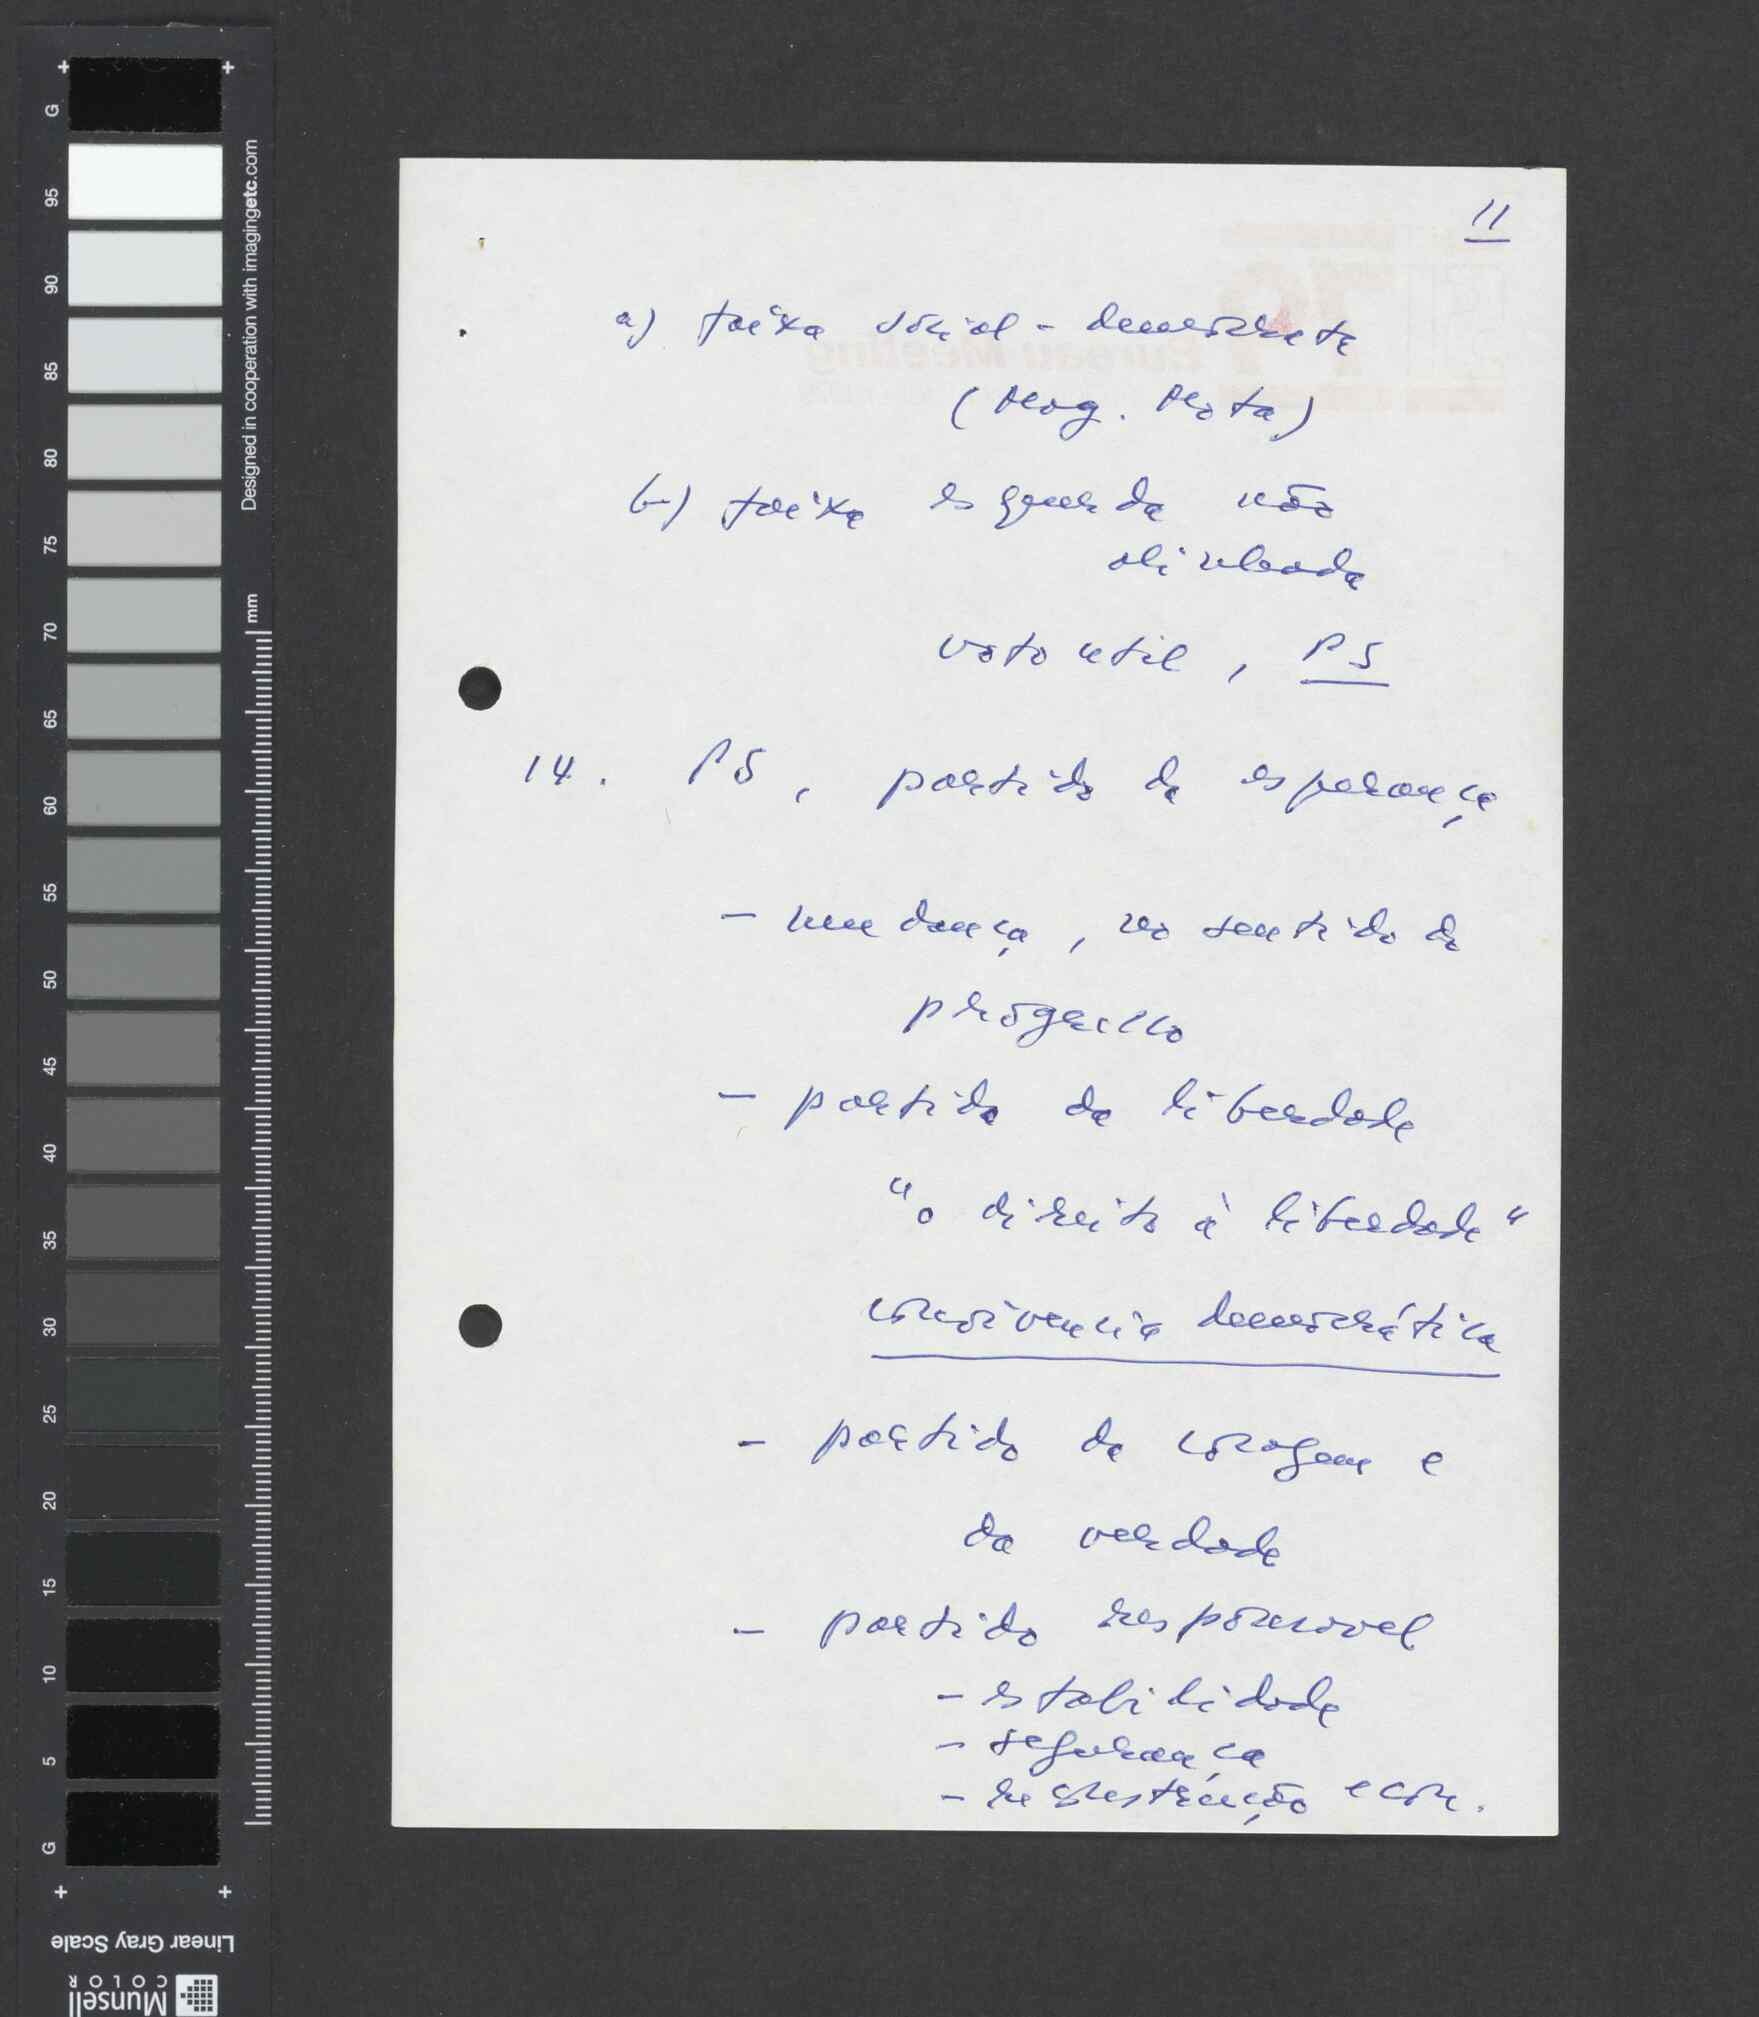 11
a) faixa social-democrata
(Mag. Mota)
b) faixa esquerda não
alinhada
voto util, PS
14. PS, partido da esperança
- mudança, no sentido do
progresso
- partido da liberdade
"o direito à liberdade"
convivencia democrática
- partido da coragem e
da verdade
- partido responsavel
- estabilidade
- segurança
- reconstrução econ.
Bureau Meeting
G
95
90
85
80
75
70
65
60
55
50
45
40
35
30
25
20
15
10
5
G
Designed in cooperation with imagingetc.com
mm
Linear Gray Scale
Munsell
COLOR